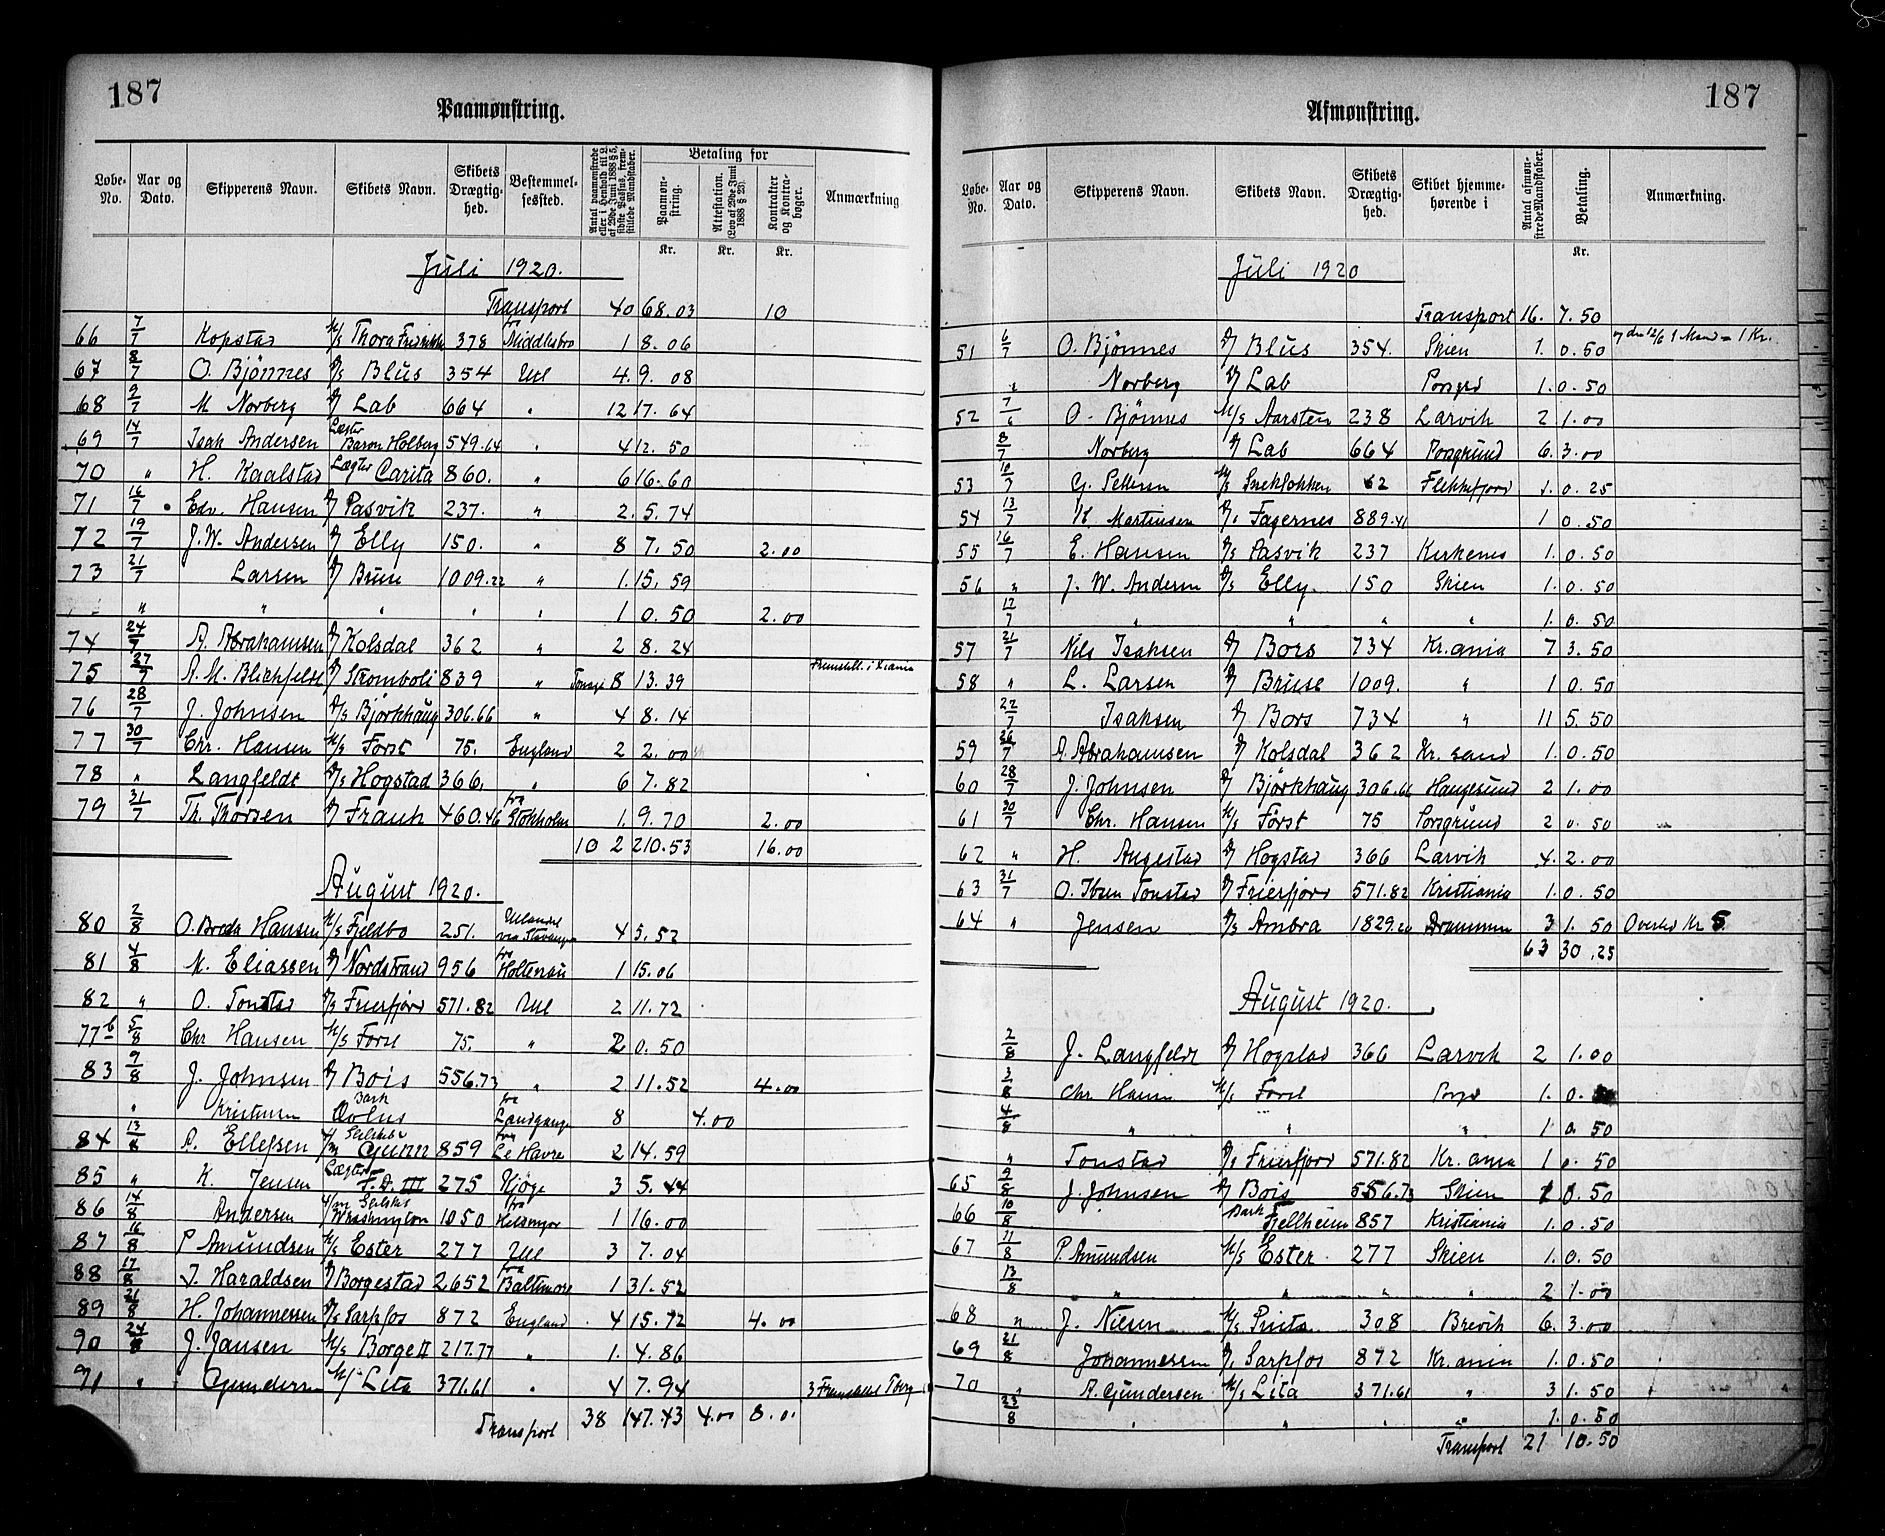 187
Paamønstring.
Løbe-No. Aar og Dato. Skipperens Navn. Skibets Navn. Skibets Drægtighed. Bestemmelsessted. Antal paamønstrede eller i Henhold til L. af 29de Juni 1888 § 5, sidste Passus, fremstillede Mandskaber. Betaling for Paamønstring. Attestation. (Lov af 29de Juni 1888 § 23). Kontrakter og Kontrabøger. Anmærkning
Kr. Kr. Kr.
Juli 1920.
Transport 40 68.03 10
66 7/7 Kopstad M/S Thora Fredrikke 378 fr Middlesbro 1 8.06
67 8/7 O. Bjønnes D/S Blus 354 Utl 4. 9.08
68 9/7 M Norberg D/ Lab 664 " 12 17.64
69 14/7 Isak Andersen Lægter Baron Holberg 549.64 " 4 12.50
70 " H. Kaalstad Lægter Carita 860. " 6 16.60
71 16/7 Edv. Hansen D/ Pasvik 237. " 2. 5.74
72 19/7 J.W. Andersen D/ Elly 150. " 8 7.50 2.00
73 21/7 Larsen D/ Bruse 1009.22 " 1. 15.59
" " " " " 1 0.50 2.00
74 24/7 A. Abrahamsen D/ Kolsdal 362 " 2 8.24
75 27/7 A.M. Blichfeldt D/ Stromboli 839 " 8 13.39 Fremstill. i Kr.ania
76 28/7 J. Johnsen D/S Bjørkhaug 306.66 " 4 8.14
77 30/7 Chr. Hansen M/S Forst 75. England 2 2.00
78 " Langfeldt D/S Hogstad 366. " 6 7.82
79 31/7 Th. Thorsen D/ Frank 460.46 fra Stokholm 1. 9.70 2.00
102 210.53 16.00
August 1920.
80 2/8 O. Brock Hansen M/S Fjeldbo 251. Utlandet via Stavanger 4 5.52
81 4/8 M. Eliassen D/ Nordstrand 956 fra Holtenau 1 15.06
82 " O. Tonstad D/S Frierfjord 571.82 Utl 2 11.72
77b 5/8 Chr Hansen M/S Forst 75. " 2 0.50
83 9/8 J. Johnsen D/ Bois 556.73 " 2 11.52 4.00
" Kristensen Bark Æolus fra Landgang 8 4.00
84 13/8 A. Ellefsen 4/m Seilskib Gunn 859 fra Le Havre 2 14.59
85 " K. Jensen Lægter F.D. III 275 Kjøge 3 5.44
86 14/8 Andersen 4/m Seilsk. Washington 1050 fra Helsingør 1 16.00
87 16/8 P Amundsen M/S Ester 277 Utl 3 7.04
88 17/8 J. Haraldsen D/ Borgestad 2652 fra Baltimore 1 31.52
89 21/8 H. Johannessen D/S Sarpfos 872 England 4 15.72 4.00
90 24/8 J. Jansen M/S Borge II 217.77 " 1. 4.86
91 " Gundersen M/S Lita 371.61 " 4 7.94 3 Fremstillet Tberg
Transport 38 147.43 4.00 8.0
187
Afmønstring.
Løbe-No. Aar og Dato. Skipperens Navn. Skibets Navn. Skibets Drægtighed. Skibet hjemmehørende i Antal afmønstrede Mandskaber. Betaling. Anmærkning.
Kr.
Juli 1920
Transport 16. 7.50
51 6/7 O. Bjønnes D/ Blus 354. Skien 1. 0.50 7 den 12/6 1 Mand = 1 Kr.
" Norberg D/ Lab Porsgrd 1. 0.50
52 7/ O. Bjønnes M/S Aarsten 238 Larvik 2 1.00
8/7 Norberg D/ Lab 664 Porsgrund 6. 3.00
53 10/7 G. Pettersen M/S Sneklokken 62 Flekkefjord 1. 0.25
54 13/7 K. Martinsen D/s Fagernes 889.41 1 0.50
55 16/7 E. Hansen D/S Pasvik 237 Kirkenes 1. 0.50
56 " J. W. Andersen D/S Elly. 150 Skien 1. 0.50
17/7 " " " " 1. 0.50
57 21/7 Nils Isaksen D/ Bors 734 Kr.ania 7 3.50
58 " L. Larsen D/ Bruse 1009. " 1 0.50
22/7 Isaksen D/ Bors 734 " 11 5.50
59 26/7 A. Abrahamsen D/ Kolsdal 362 Kr.sand 1. 0.50
60 28/7 J. Johnsen D/ Bjørkhaug 306.66 Haugesund 2 1.00
61 30/7 Chr. Hansen M/S Først 75 Porsgrund 2 0.50
62 " H. Augestad D/ Hogstad 366 Larvik 4. 2.00
63 31/7 O. Ibsen Tonstad D/ Frierfjord 571.82 Kristiania 1. 0.50
64 " Jensen D/S Ambra 1829.20 Drammen 3 1.50 Overtid Kr 5
63 30.25
August 1920.
2/8 J. Langfeldt D/ Hogstad 366 Larvik 2 1.00
3/8 Chr Hansen M/S Forst Porsgr 1. 0.
4/8 " " " 1 0.50
" Tonstad D/S Frierfjord 571.82 Kr.ania 1 0.50
65 9/8 J. Johnsen D/ Bois 556.73 Skien 1 0.50
66 10/8 Bark Fjellheim 857 Kristiania 1. 0.50
67 11/8 P. Amundsen M/S Ester 277 Skien 1. 0.50
13/8 " " " " 2 1.00
68 " J. Nilsen M/S Pinta 308 Brevik 6. 3.00
69 21/8 Johannessen D/ Sarpfos 872 Kr.ania 1. 0.50
70 " A. Gundersen M/S Lita 371.61 " 3 1.50
23/8 " " " " 1. 0.50
Transport 21 10.50